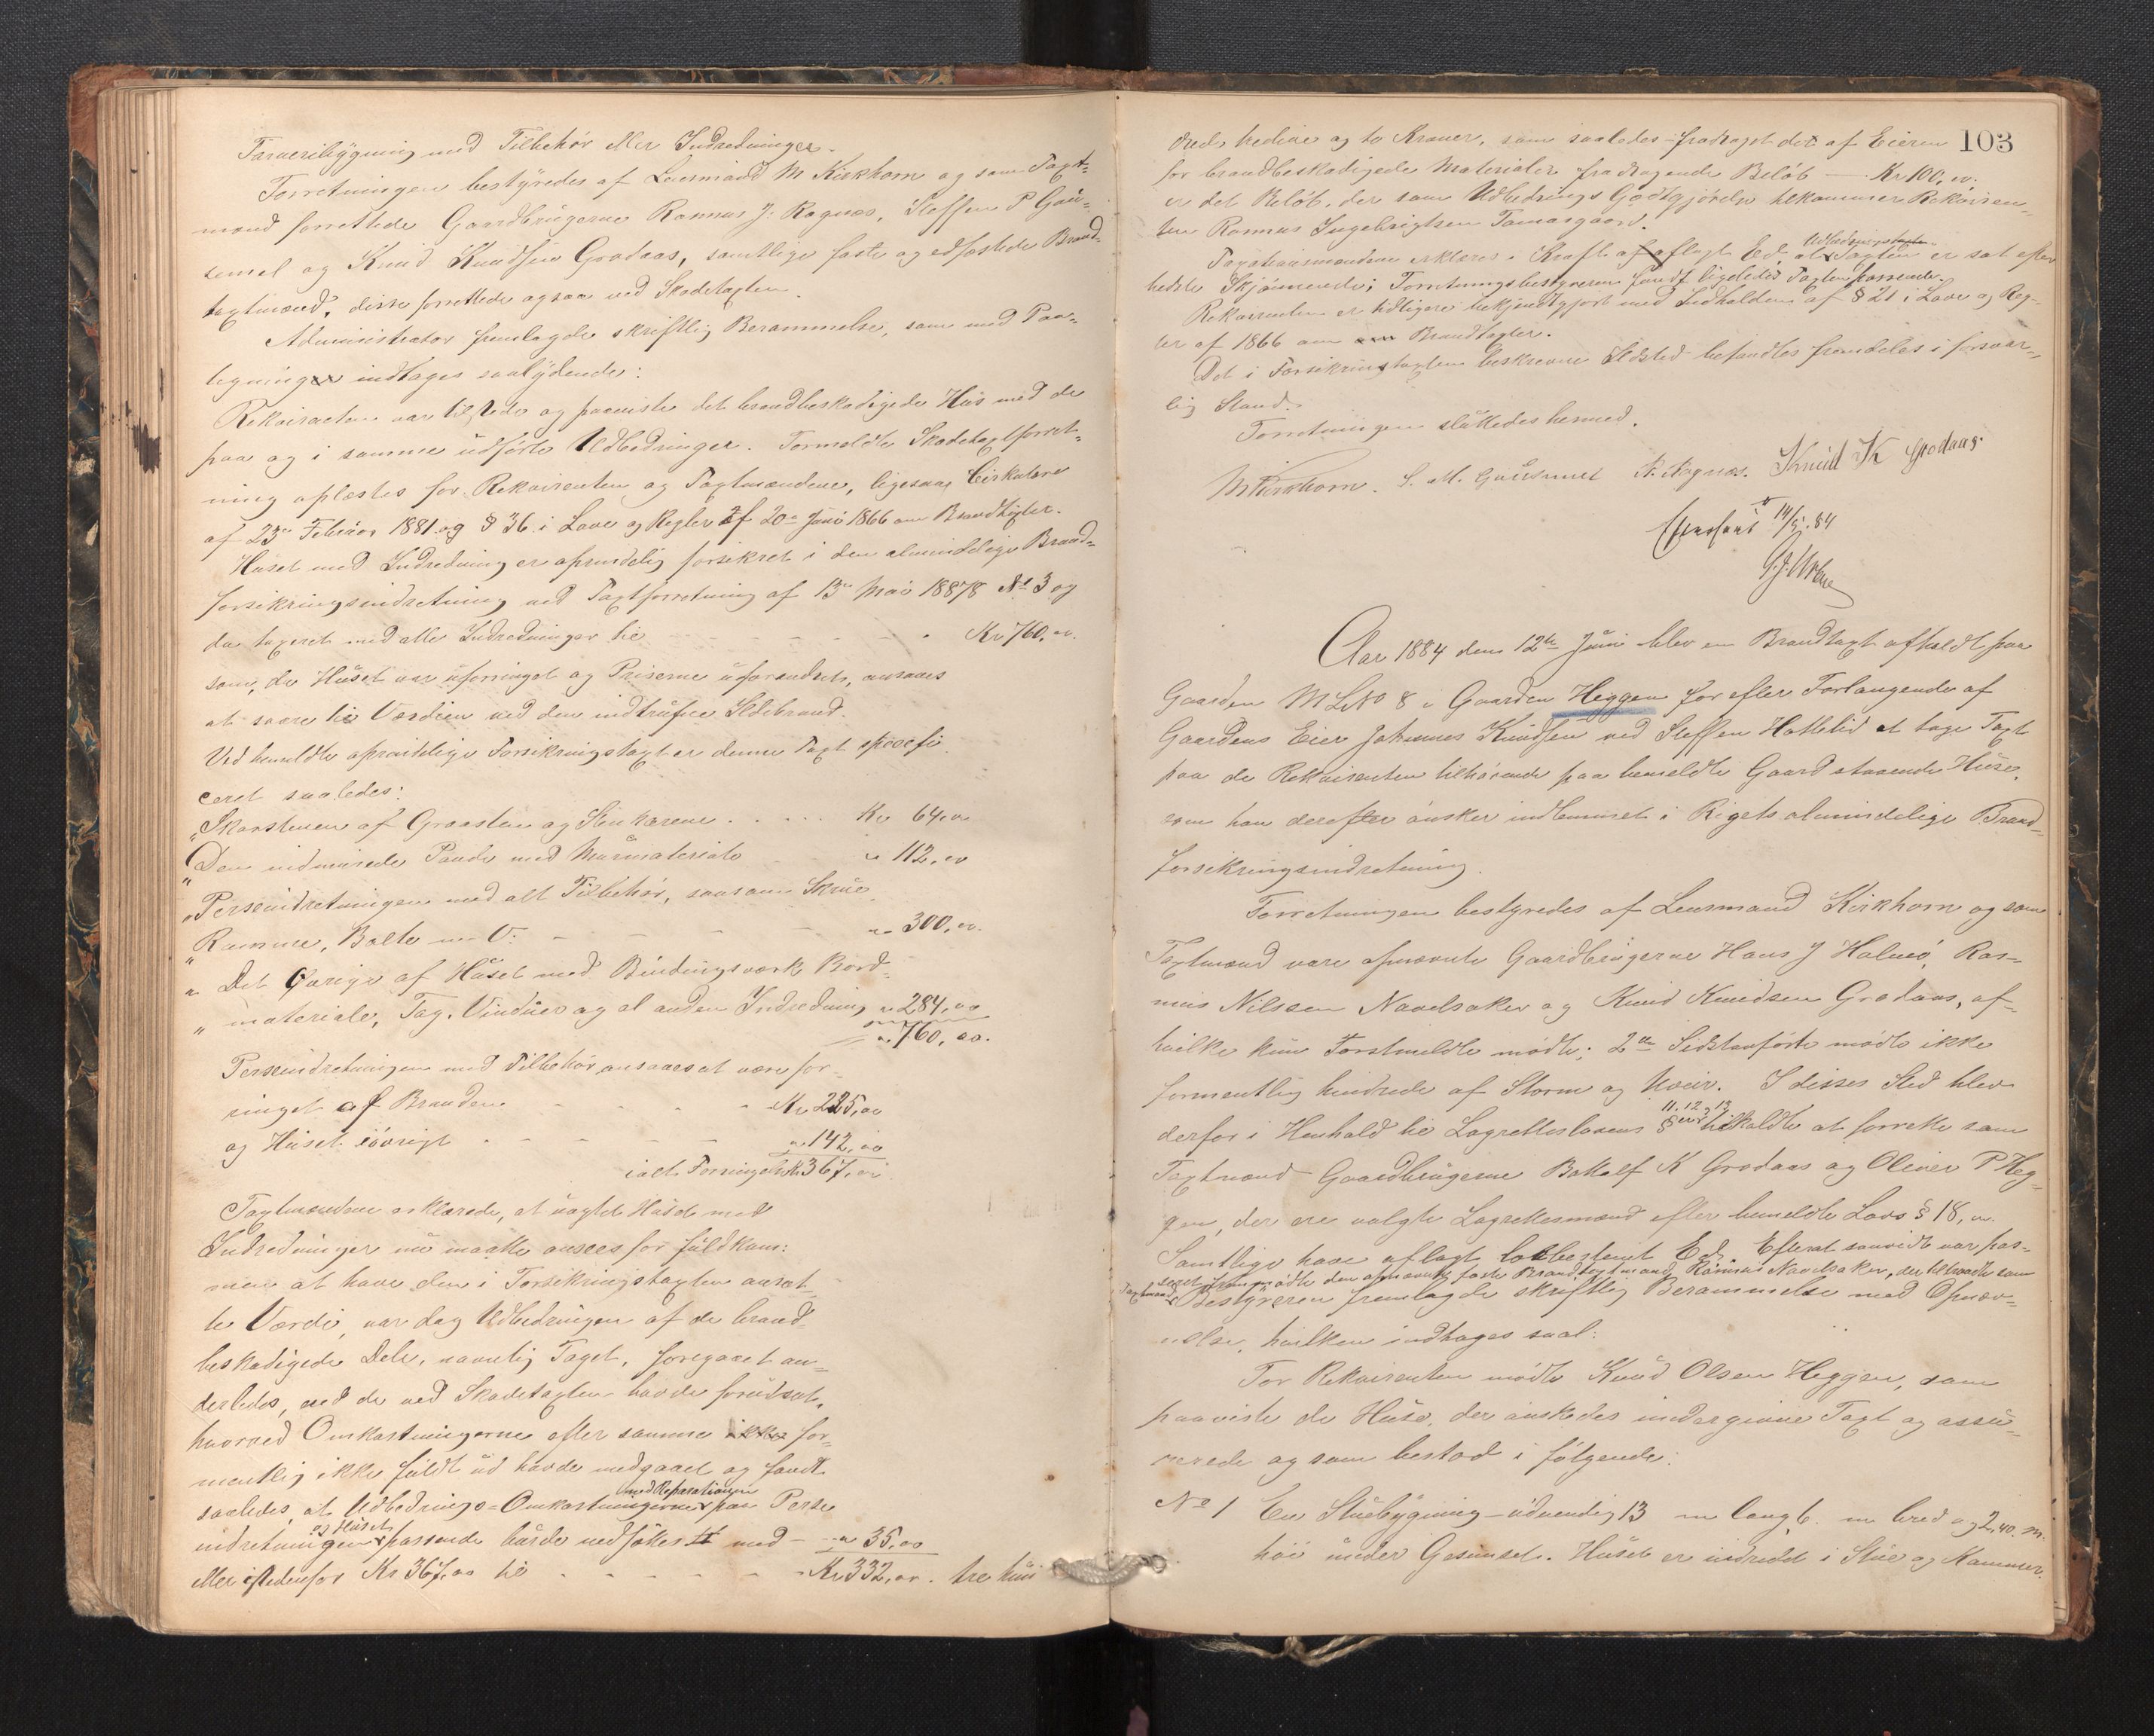 Farveribygning med Tilbehør eller Indredninger.
Forretningen bestyredes af Lensmand M Kirkhorn og som Taxt-
mænd forrettede Gaardbrugerne Rasmus J. Ragnæs, Steffen P Gau-
semel og Knud Knudsen Grodaas, samtlige faste og edfæstede Brand-
taxtmænd, disse forrettede ogsaa ved Skadetaxten.
Administrator fremlagde skriftlig Berammelse, som med Paa-
tegninger indtages saalydende:
Rekvirenten var tilstede og paaviste det brandbeskadigede Hus med de
paa og i samme udførte Udbedringer. Formeldte Skadetaxtforret-
ning oplæstes for Rekvirenten og Taxtmændene, ligesaa Cirkulære
af 23de Februar 1881 og § 36 i Love og Regler af 20de Juni 1866 om Brandtaxter.
Huset med Indredning er oprindelig forsikret i den almindelige Brand-
forsikringsindretning ved Taxtforretning af 13de Mai 18878 No 3 og
da taxeret med alle Indredninger til - - - - Kr 760,00.
som, da Huset var uforringet og Priserne uforandret, ansaaes
at være til Værdien ved den indtrufne Ildebrand.
Ved bemeldte oprindelige Forsikringstaxt er denne Taxt specifi-
ceret saaledes:
"Skorstenen af Graasten og Stenkarene . . . . . Kr 64,00
"Den indmurede Pande med Murmateriale " 112,00
"Perseindretningen med alt Tilbehør, saasom Skrue,
" Ramme, Bolte m. V. - - - - " 300,00.
" Det Øvrige af Huset med Bindingsværk Bord-
" materiale, Tag, Vinduer og al anden Indredning " 284,00
" 760,00.
Perseindretningen med Tilbehør ansaaes at være for-
ringet af Branden - - - - Kr 225,00
og Huset iøvrigt - - - - " 142,00
ialt Forringelse Kr 367,00
Taxtmændene erklærede, at uagtet Huset med
Indredninger nu maatte ansees for fuldkom-
men at have den i Forsikringstaxten ansat-
te Værdi, var dog Udbedringen af de brand-
beskadigede Dele, navnlig Taget, foregaaet an-
derledes, end de ved Skadetaxten havde forudsat,
hvorved Omkostningerne efter samme ikke for-
mentlig ikke fuldt ud havde medgaaet og fandt
med Reparationen
saaledes, at Udbedrings-Omkostningerne paa Perse
og Huset
indretningen passende burde nedsættes med - " 35,00
eller istedenfor Kr 367,00 til - - - - Kr 332,00. tre hun-
103
drede tredive og to Kroner, som saaledes fradraget det af Eieren
for brandbeskadigede Materialer fradragende Beløb — Kr 100,00.
er det Beløb, der som Udbedrings Godtgjørelse tilkommer Rekviren-
ten Rasmus Ingebrigtsen Tomasgaard.
Udbedringstaxten
Taxationsmændene erklærer i Kraft af aflagt Ed, at Taxten er sat efter
bedste Skjønnende; Forretningsbestyreren fandt ligeledes Taxten passende.
Rekvirenten er tidligere bekjendtgjort med Indholden af § 21 i Love og Reg-
ler af 1866 om om Brandtaxter.
Det i Forsikringstaxten beskrevne Ildsted befandtes fremdeles i forsvar-
lig Stand.
Forretningen sluttedes hermed.
M Kirkhorn. S. M. Gausemel R. Ragnæs. Knud K Grodaas.
14/5. 84
Aar 1884 den 12te Juni blev en Brandtaxt afholdt paa
Gaarden M L No 8 i Gaarden Heggen for efter Forlangende af
Gaardens Eier Johannes Knudsen ved Steffen Hatlelid at tage Taxt
paa de Rekvirenten tilhørende paa bemeldte Gaard staaende Huse,
som han derefter ønsker indlemmet i Rigets almindelige Brand-
forsikringsindretning.
Forretningen bestyredes af Lensmand Kirkhorn og som
Taxtmænd vare opnævnte Gaardbrugerne Hans J Holmø, Ras-
mus Nilssen Navelsaker og Knud Knudsen Grodaas, af
hvilke kun Førstmeldte mødte; 2de Sidstanførte mødte ikke
formentlig hindrede af Storm og Uveir. I disses Sted blev
11. 12 og 13
derfor i Henhold til Lagretteslovens §er tilkaldte at forrette som
Taxtmænd Gaardbrugerne Botolf K Grodaas og Oliver P Heg-
gen, der ere valgte Lagrettesmænd efter bemeldte Lovs § 18, ..
Samtlige have aflagt lovbestemt Ed. Efterat saavidt var pas-
seret fremmødte den opnævnte faste Brandtaxtmand Rasmus Navelsaker, der tiltraadte som
Taxtmand. Bestyreren fremlagde skriftlig Berammelse med Opnæv-
nelse, hvilken indtages saal:
For Rekvirenten mødte Knud Olsen Heggen, som
paaviste de Huse, der ønskedes undergivne Taxt og assu-
rerede og som bestod i følgende:
No 1 En Stuebygning - udvendig 13 m lang, 6. m bred og 2,40. m.
høi under Gesimset. Huset er indredet i Stue og Kammer.